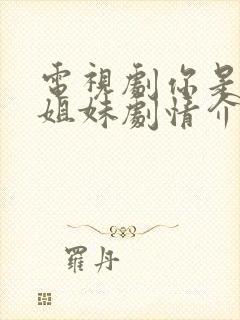 電視劇你是
姐妹劇情介
羅丹